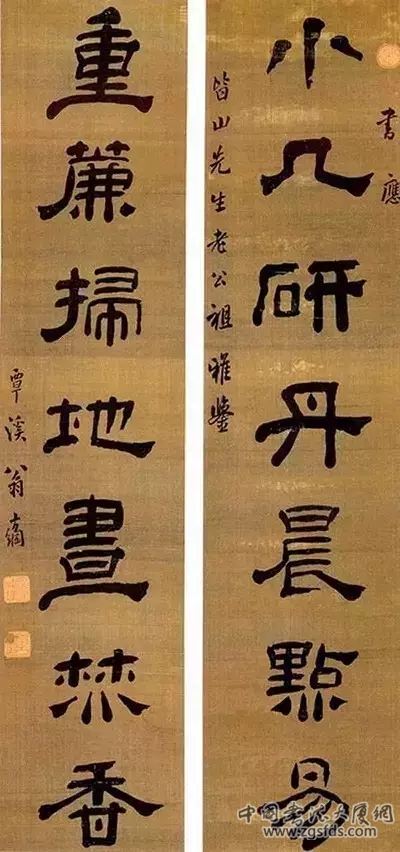 小几研丹晨點易
書應
皆山先生老公祖雅鑒
重簾掃地晝焚香
覃溪翁方綱
中國書法大廈網
www.zgsfds.com